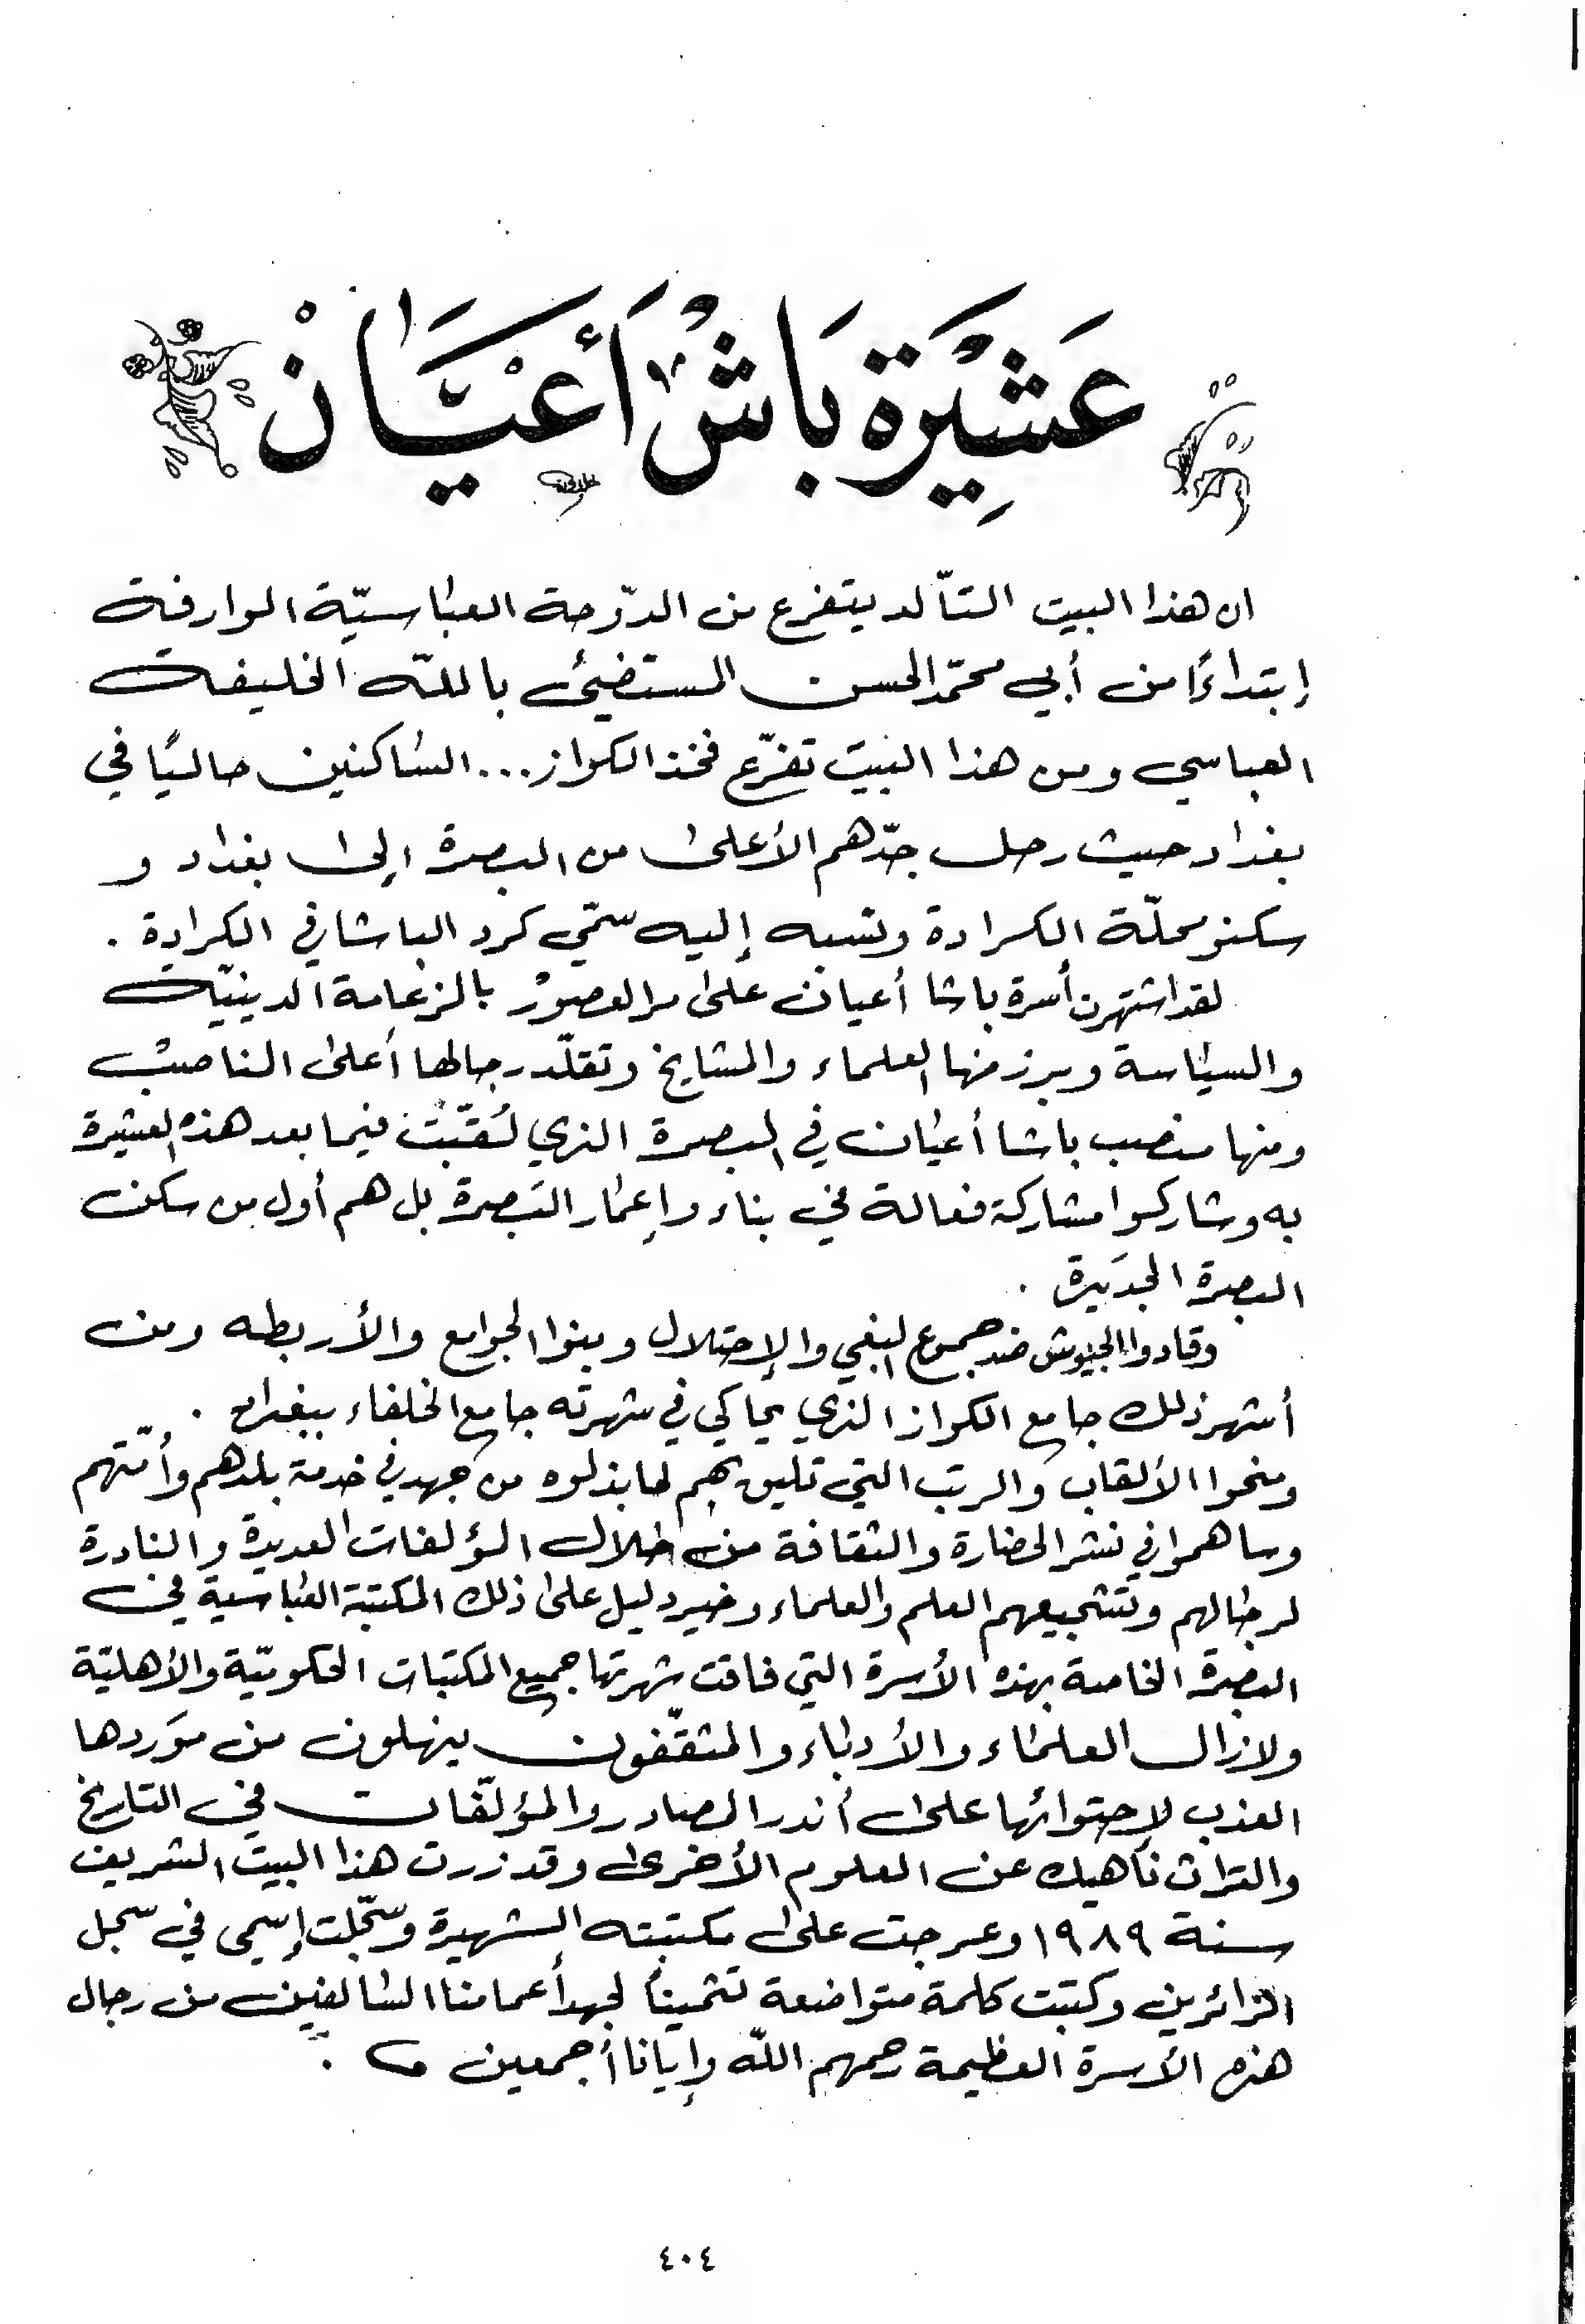 عَشِيْرَة بَاشْ أَعْيَانْ
ان هذا البيت التّالد يتفرع من الدّوحة العباسيّة الوارفة
إبتداءًا من أبي محمّد الحسن المستضيئ باللّه الخليفة
العباسي ومن هذا البيت تفرّع فخذ الكواز... الساكنين حاليًا في
بغداد حيث رحل جدّهم الأعلى من البصرة إلى بغداد و
سكنو محلّة الكرادة ونسبه إليه سمّي كرد الباشا في الكرادة .
لقد اشتهرت أسرة باشا أعيان على مر العصور بالزعامة الدينيّة
والسياسة وبرز منها العلماء والمشايخ وتقلّد رجالها أعلى المناصب
ومنها منصب باشا أعيان في البصرة الذي لُقّبت فيما بعد هذه العشيرة
به وشاركوا مشاركة فعالة في بناء وإعمار البصرة بل هم أول من سكن
البصرة الجديدة .
وقادوا الجيوش ضد جموع البغي والإحتلال وبنوا الجوامع والأربطه ومن
أشهر ذلك جامع الكواز الذي يحاكي في شهرته جامع الخلفاء ببغداد .
ومنحوا الألقاب والرتب التي تليق بهم لما بذلوه من جهد في خدمة بلدهم وأمّتهم
وساهموا في نشر الحضارة والثقافة من خلال المؤلفات العديدة والنادرة
لرجالهم وتشجيعهم العلم والعلماء وخير دليل على ذلك المكتبة العباسية في
البصرة الخاصة بهذه الأسرة التي فاقت شهرتها جميع المكتبات الحكوميّة والأهليّة
ولازال العلماء والأدباء والمثقّفون ينهلون من موَردها
العذب لإحتوائها على أندر المصادر والمؤلّفات في التاريخ
والتراث ناهيك عن العلوم الأخرى وقد زرت هذا البيت الشريف
سنة ١٩٨٩ وعرجت على مكتبته الشهيرة وسجّلت إسمي في سجل
الزائرين وكتبت كلمة متواضعة تثمينًا لجهد أعمامنا السالفين من رجال
هذه الأسرة العظيمة رحمهم اللّه وإيانا أجمعين .
٤٠٤